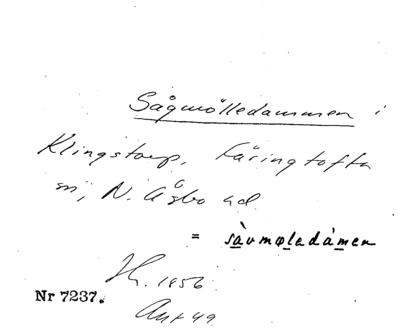 Sågmölledammen i
Klingstorp, Färingtofta
sn, N. Åsbo hd
= sàvmøledámen
H. 1956
Nr 7237.
Ant 49